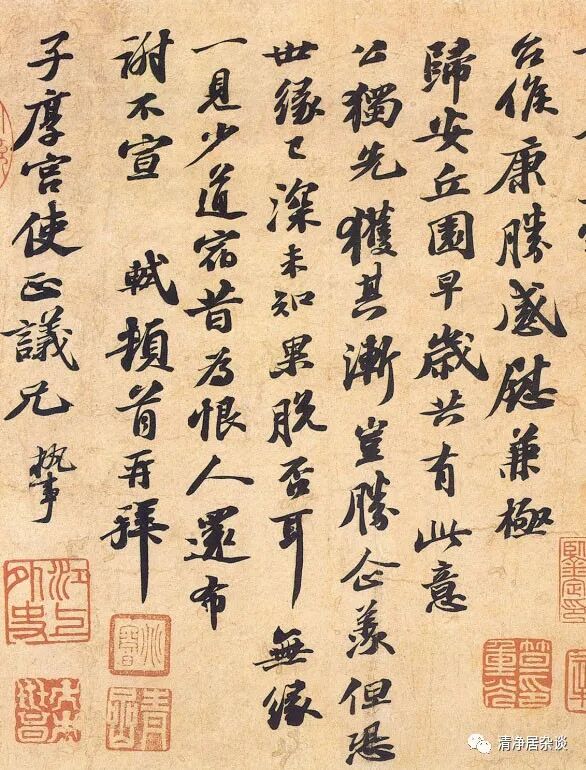 台候康勝感慰兼極
歸安丘園早歲共有此意
公獨先獲其漸豈勝企羨但恐
世緣已深未知果脫否耳 無緣
一見少道宿昔為恨人還布
謝不宣 軾頓首再拜
子厚宮使正議兄 執事
江上外史
笪重光印
清净居杂谈